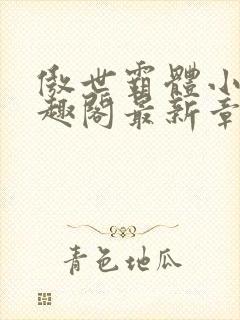 傲世霸體小
趣閣最新章
青色地瓜